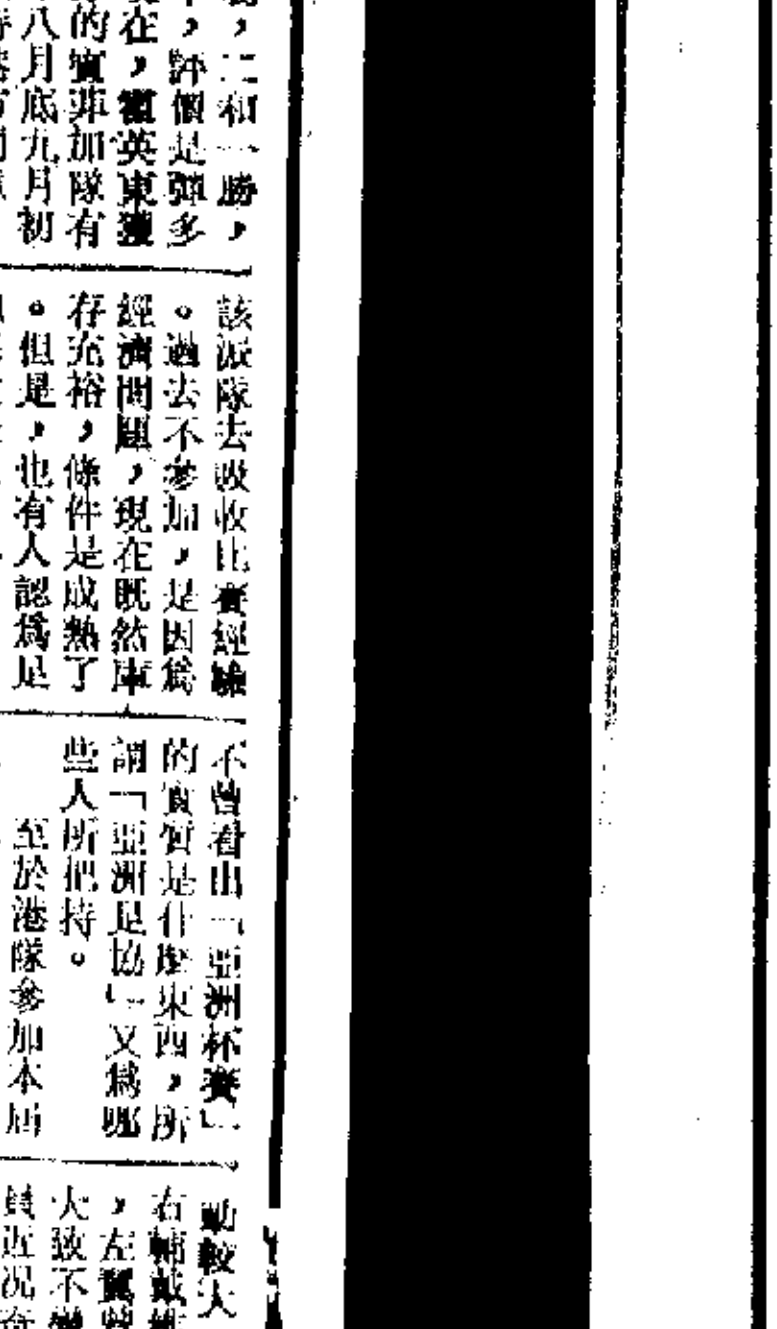 ，二和一勝，
，評價是彈多
在，霍英東獲
的賓菲加隊有
八月底九月初
該派隊去吸收比賽經驗
。過去不參加，是因爲
經濟問題，現在既然庫
存充裕，條件是成熟了
。但是，也有人認爲是
不曾看出「亞洲杯賽」
的實質是什麼東西，所
謂「亞洲足協」又爲哪
些人所把持。
至於港隊參加本屆
動較大
右輔戴維
，左翼
大致不變
員近况